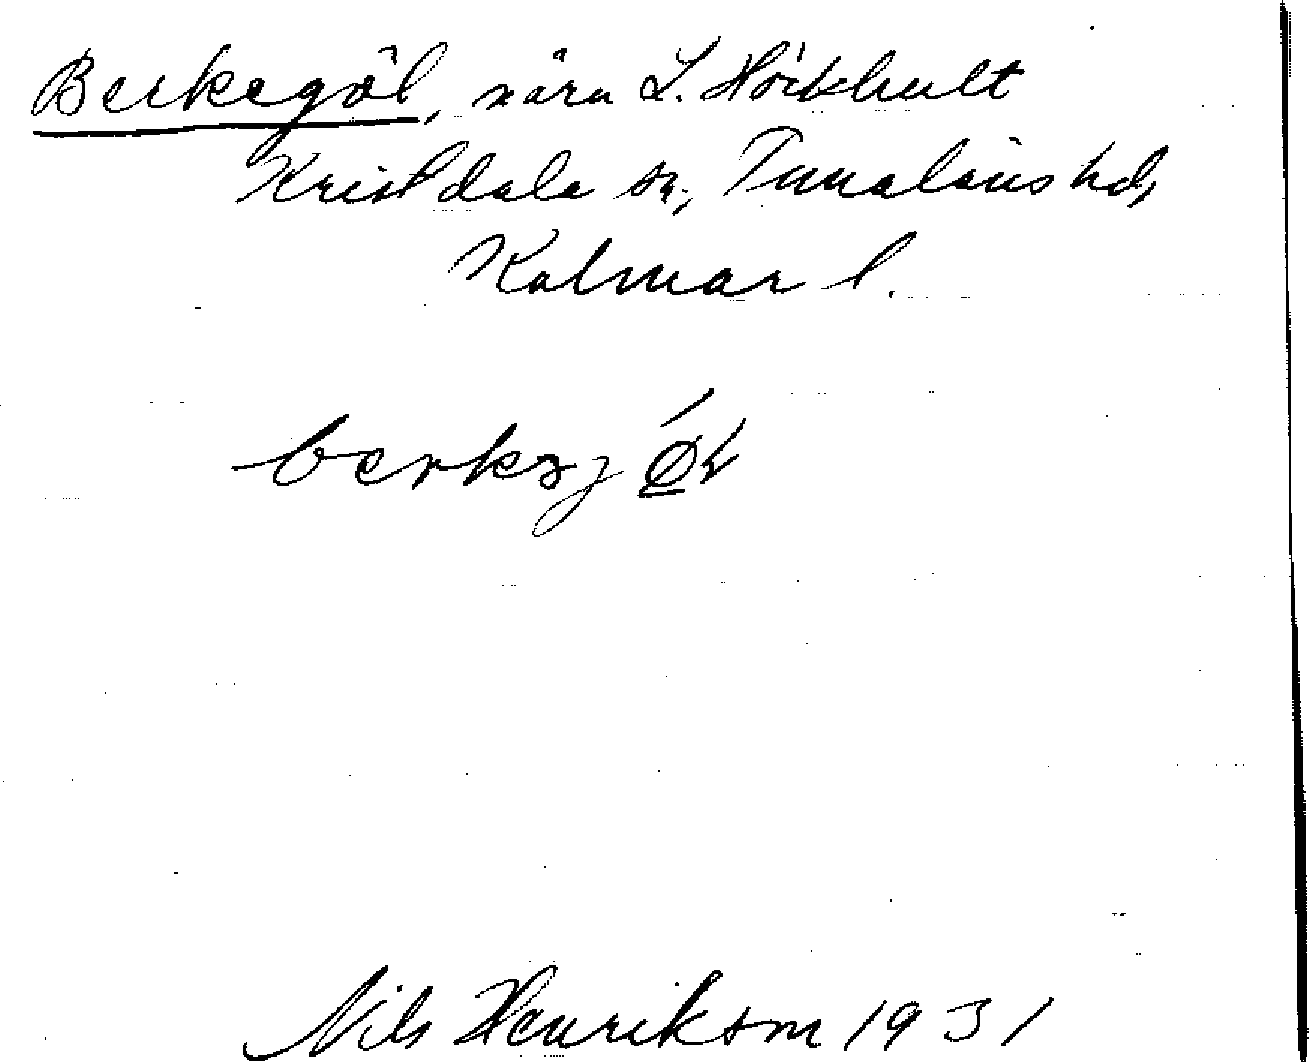 Berkegöl, nära L. Hökhult
Kristdala sn, Tunaläns hd,
Kalmar l.
Nils Henrikson 1931